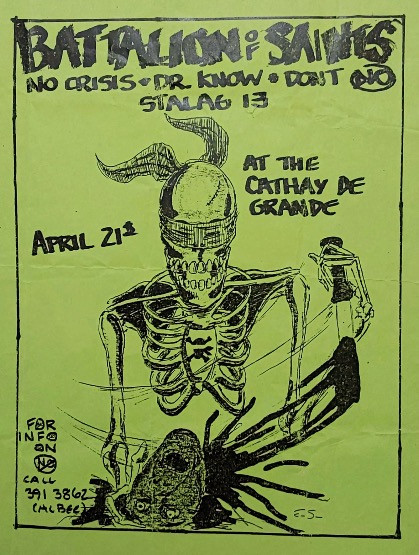 BATTALION OF SAINTS
NO CRISIS • DR. KNOW • DON'T NO
STALAG 13
AT THE
CATHAY DE
GRANDE
APRIL 21st
FOR
INFO
ON
NO
CALL
391 3862
(MCBEE)
E.S.